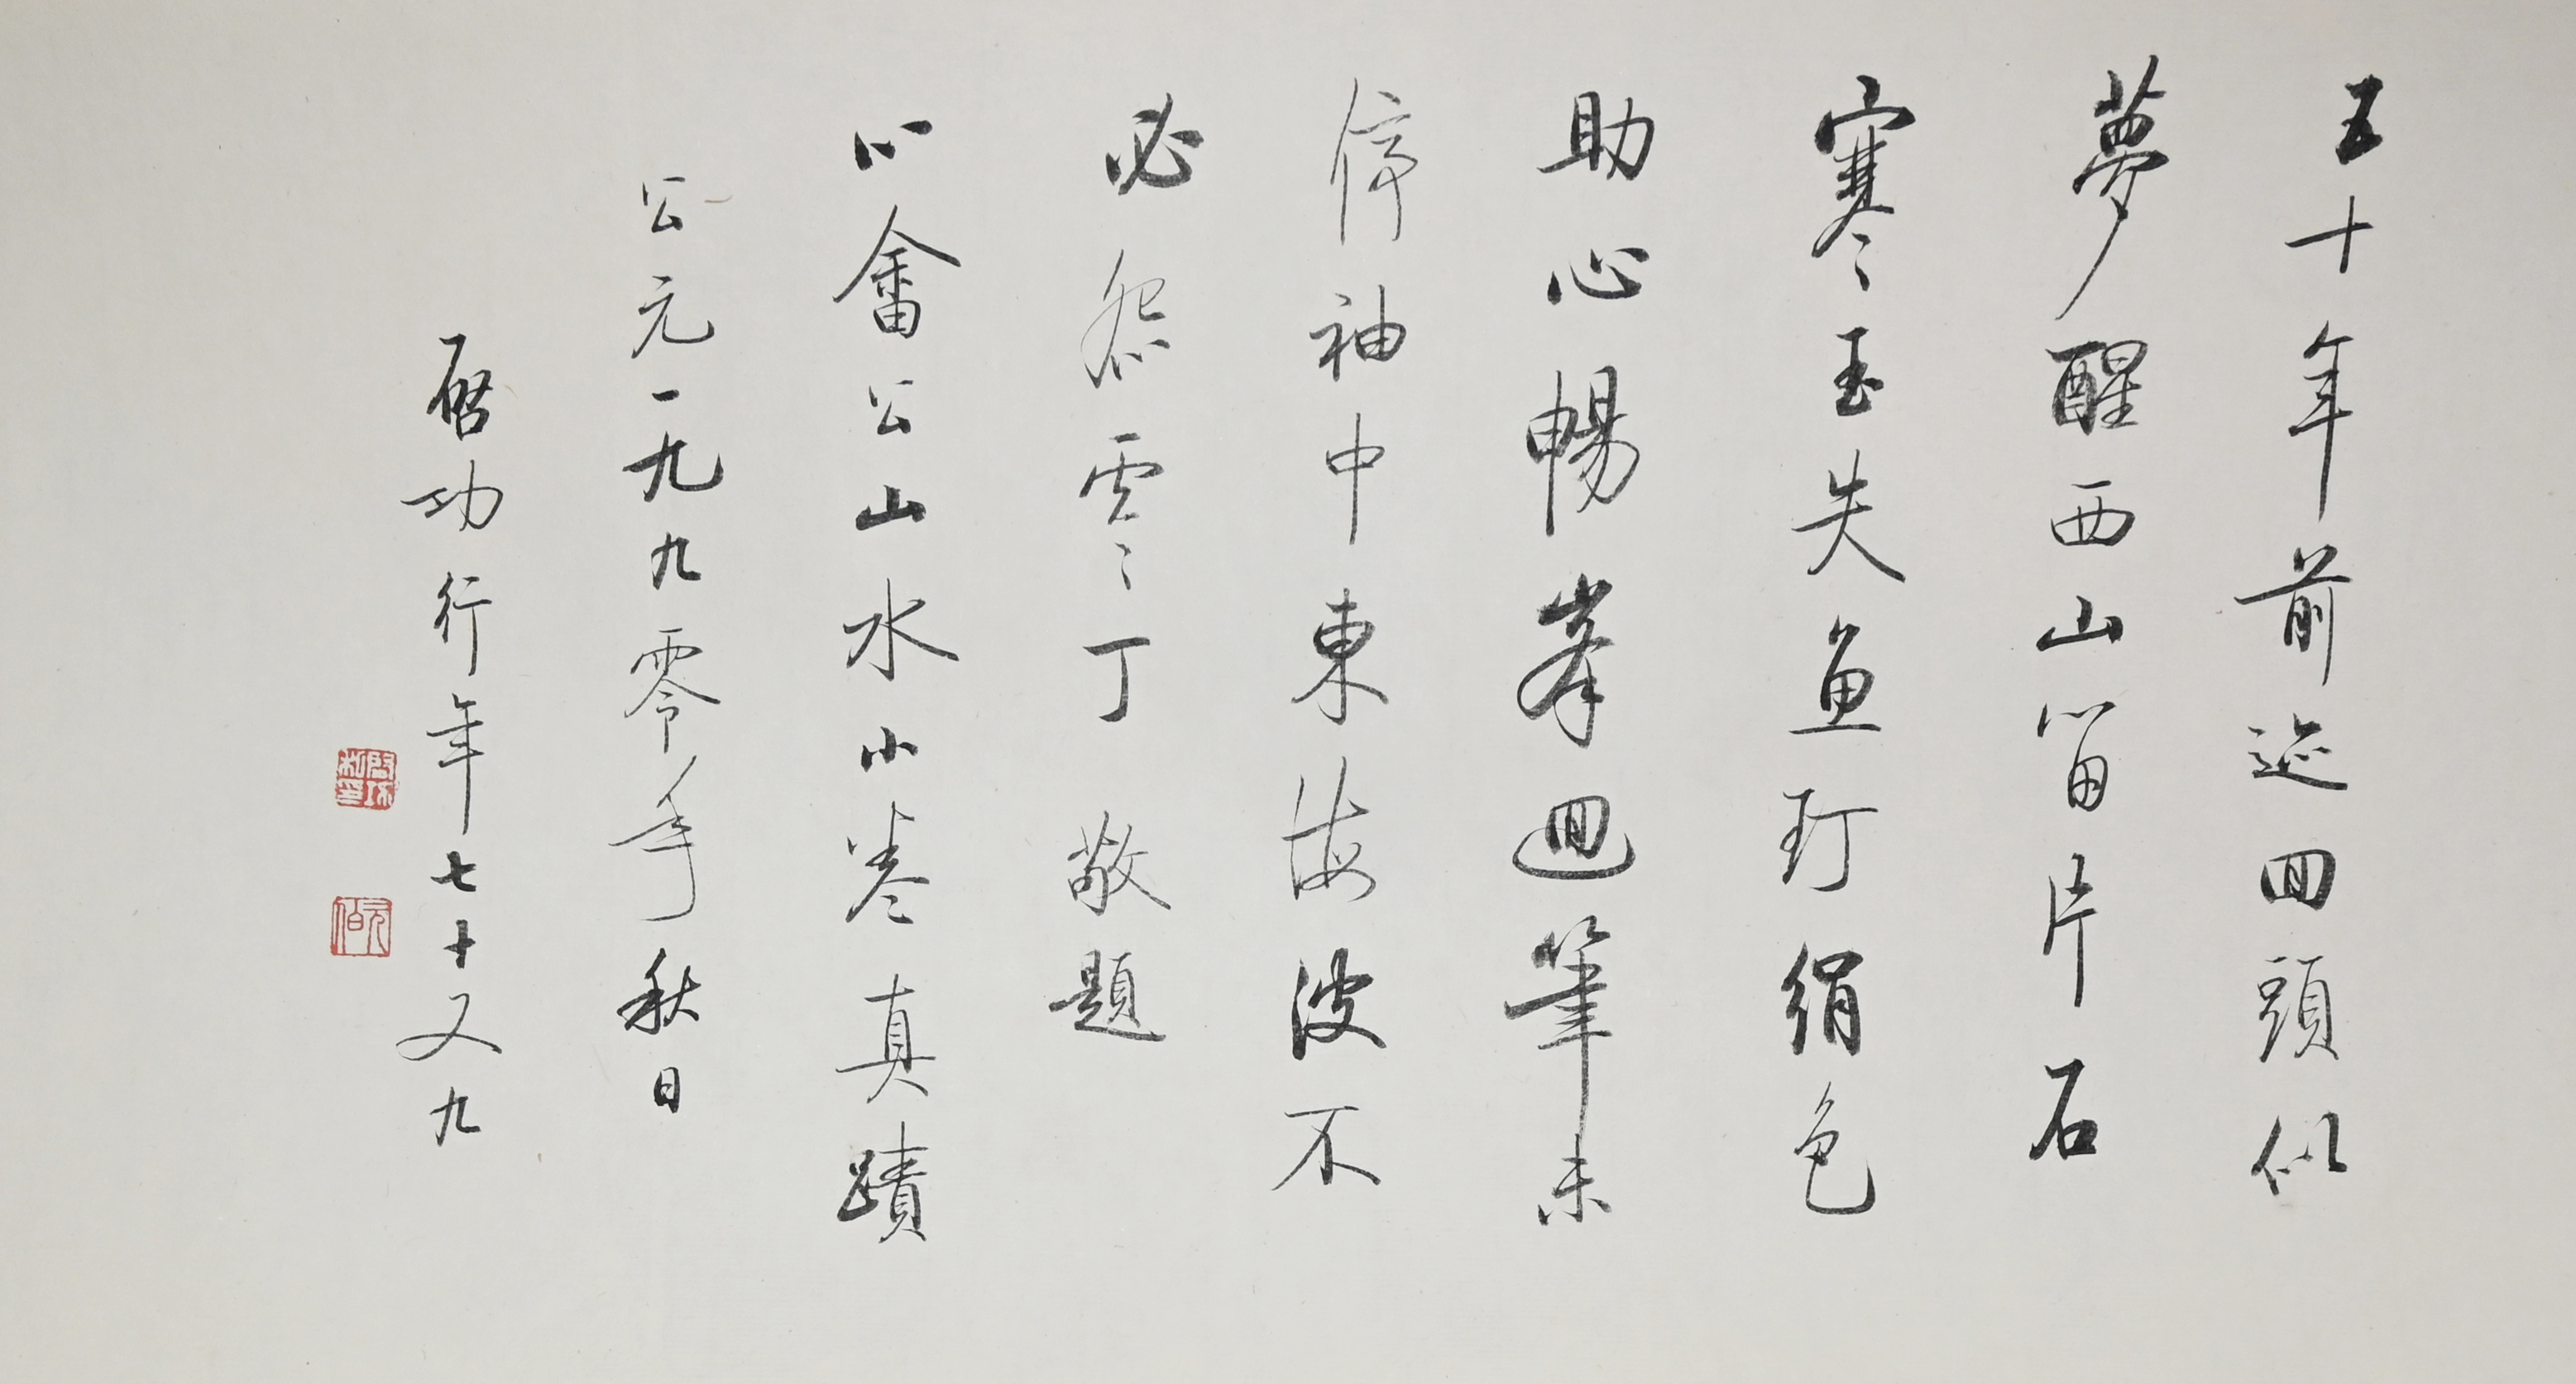 五十年前迹回頭似
夢醒西山留片石
寒玉失魚玎絹色
助心暢峯迴筆未
停袖中東海波不
必怨零丁 敬題
心畬公山水小卷真蹟
公元一九九零年秋日
啓功行年七十又九
啓功私印
元伯